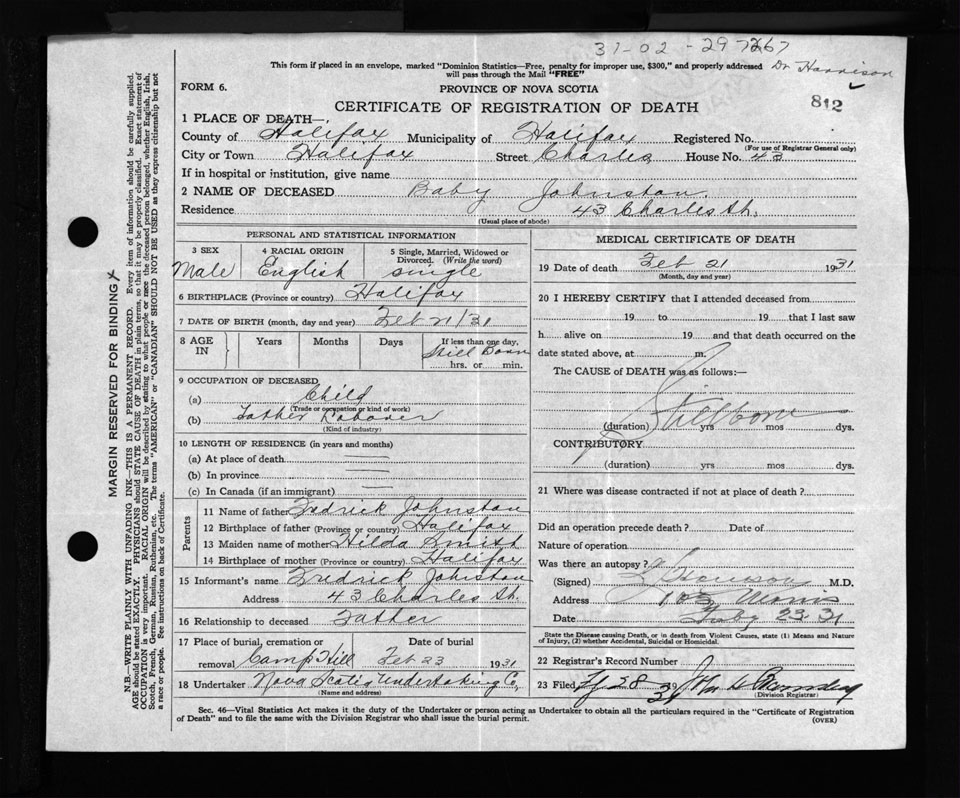 31-02-297267
This form if placed in an envelope, marked "Dominion Statistics—Free, penalty for improper use, $300," and properly addressed Dr Harrison
will pass through the Mail "FREE"
FORM 6. PROVINCE OF NOVA SCOTIA
CERTIFICATE OF REGISTRATION OF DEATH 812
1 PLACE OF DEATH—
County of Halifax Municipality of Halifax Registered No.
(For use of Registrar General only)
City or Town Halifax Street Charles House No. 43
If in hospital or institution, give name
2 NAME OF DECEASED Baby Johnston.
Residence 43 Charles St.
(Usual place of abode)
PERSONAL AND STATISTICAL INFORMATION
3 SEX 4 RACIAL ORIGIN 5 Single, Married, Widowed or
Divorced. (Write the word)
Male English single
6 BIRTHPLACE (Province or country) Halifax
7 DATE OF BIRTH (month, day and year) Feb 21/31
8 AGE IN Years Months Days If less than one day,
Still Born
hrs. or min.
9 OCCUPATION OF DECEASED
(a) Child
(Trade or occupation or kind of work)
(b) Father Laborer
(Kind of industry)
10 LENGTH OF RESIDENCE (in years and months)
(a) At place of death
(b) In province
(c) In Canada (if an immigrant)
Parents
11 Name of father Fredrick Johnston
12 Birthplace of father (Province or country) Halifax
13 Maiden name of mother Hilda Smith
14 Birthplace of mother (Province or country) Halifax
15 Informant's name Fredrick Johnston
Address 43 Charles St.
16 Relationship to deceased Father
17 Place of burial, cremation or Date of burial
removal Camp Hill Feb 23 1931
18 Undertaker Nova Scotia Undertaking Co,
(Name and address)
MEDICAL CERTIFICATE OF DEATH
19 Date of death Feb 21 1931
(Month, day and year)
20 I HEREBY CERTIFY that I attended deceased from
19 to 19 that I last saw
h alive on 19 and that death occurred on the
date stated above, at m.
The CAUSE of DEATH was as follows:—
Stillborn
(duration) yrs mos dys.
CONTRIBUTORY
(duration) yrs mos dys.
21 Where was disease contracted if not at place of death?
Did an operation precede death? Date of
Nature of operation
Was there an autopsy?
(Signed) M.D.
Address 103 Morris
Date Feby 23-31
State the Disease causing Death, or in death from Violent Causes, state (1) Means and Nature
of Injury, (2) whether Accidental, Suicidal or Homicidal.
22 Registrar's Record Number
23 Filed 28 31
(Division Registrar)
Sec. 46—Vital Statistics Act makes it the duty of the Undertaker or person acting as Undertaker to obtain all the particulars required in the "Certificate of Registration
of Death" and to file the same with the Division Registrar who shall issue the burial permit. (OVER)
MARGIN RESERVED FOR BINDING
N.B.—WRITE PLAINLY WITH UNFADING INK—THIS IS A PERMANENT RECORD. Every item of information should be carefully supplied.
AGE should be stated EXACTLY. PHYSICIANS should STATE CAUSE OF DEATH in plain terms, so that it may be properly classified. Exact statement of
OCCUPATION is very important. RACIAL ORIGIN will be described by stating to what people or race the deceased person belonged, whether English, Irish,
Scotch, French, German, Russian, Ruthenian, etc. The terms "AMERICAN" or "CANADIAN" SHOULD NOT BE USED as they express citizenship but not
a race or people. See instructions on back of Certificate.